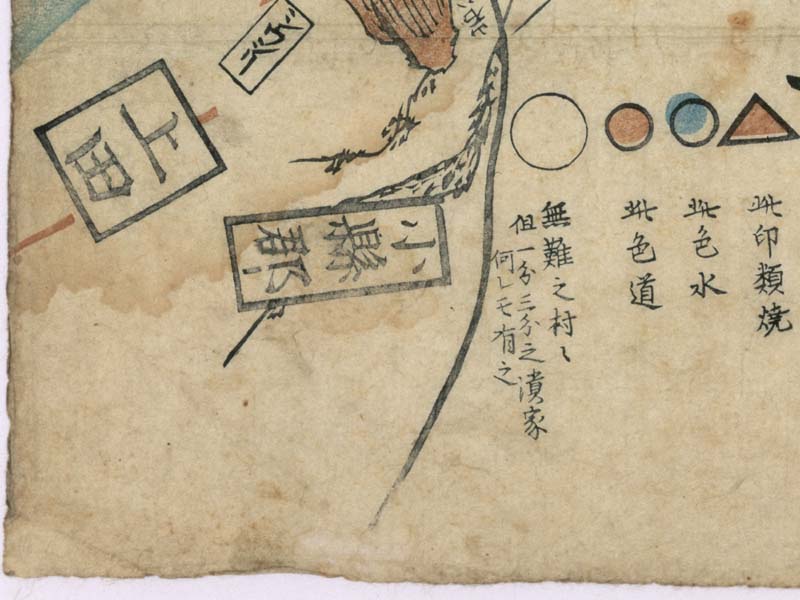 此印類焼
此色水
此色道
無難之村々
但一分二分之潰家
何レモ有之
小縣郡
上田